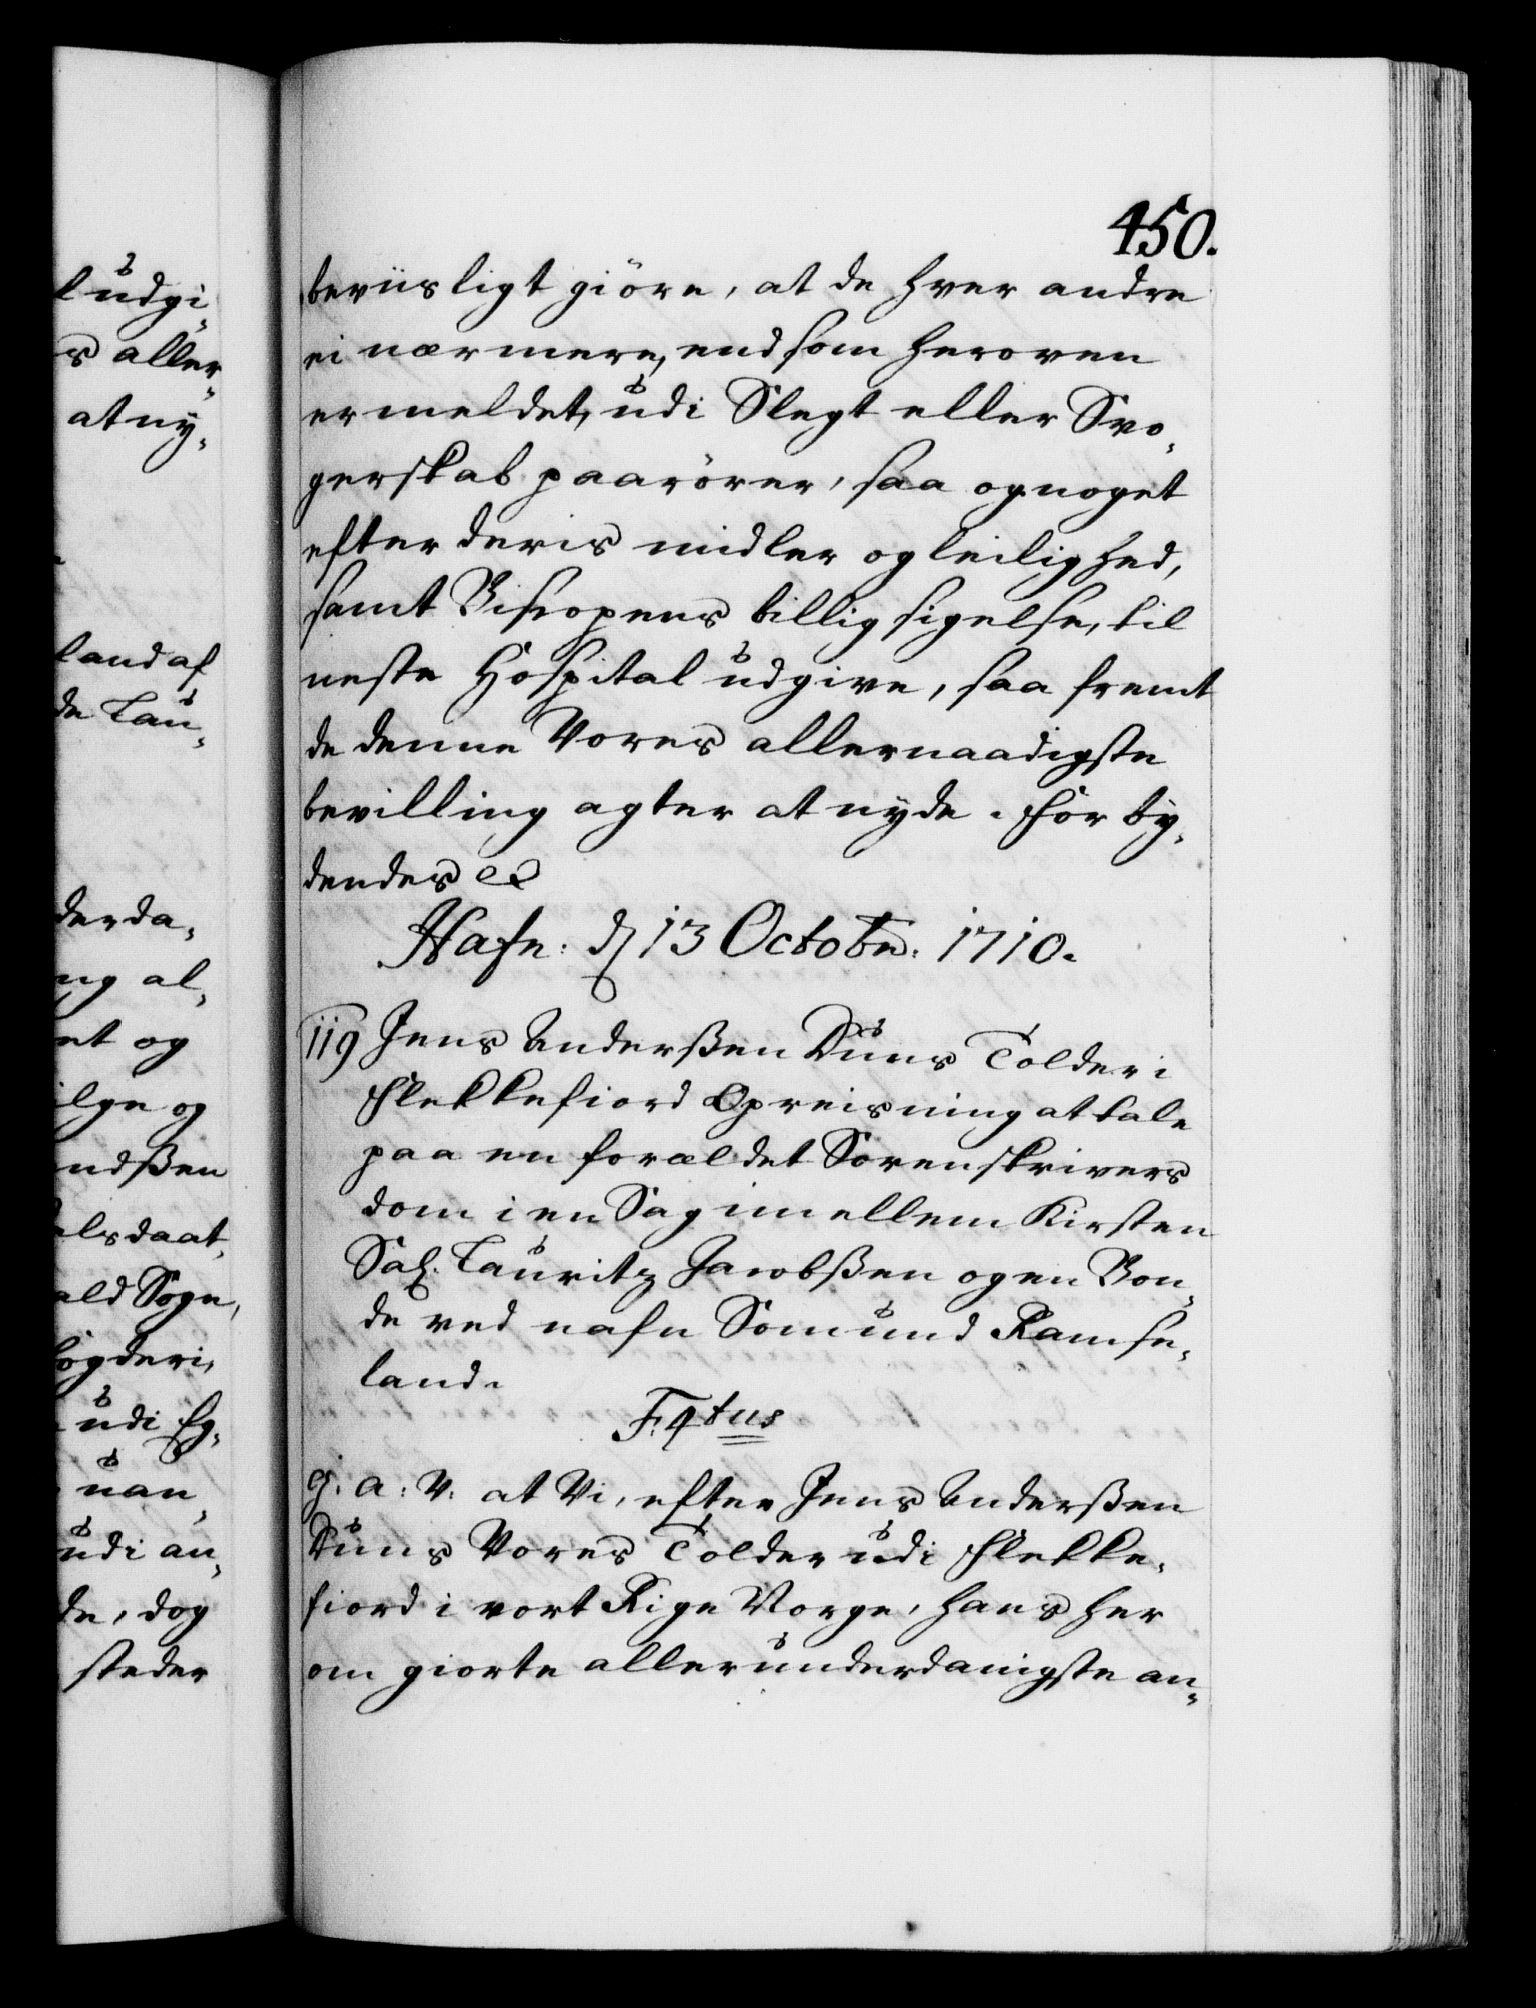 450.
beviisligt giöre, at de hver andre
ei nærmere, end som heroven
ermeldet, udi Slegt eller Svo-
gerskab paarörer, saa og noget
efter deris midler og leilighed,
samt Biscopens billig sigelse, til
neste Hospital udgive, saa fremt
de denne Vores allernaadigste
bevilling agter at nyde. For by-
dendes etc
Hafn: d 13 Octobr: 1710.
119 Jens Anderßen Duus Tolder i
Flekkefiord Opreisning at tale
paa en forældet Sorenskrivers
dom i en Sag imellem Kirsten
Sal. Lauritz Jacobßen og en Bon-
de ved nafn Somund Ramse-
land.
F: 4tus
G: A: V: at Vi, efter Jens Anderßen
Duus Vores Tolder udi Flekke-
fiord i vort Rige Norge, hans her
om giorte allerunderdanigste an-
l udgi-
s aller-
at ny-
land af
de Lau-
derda-
ng al-
et og
ilge og
ndßen
elsdaat-
ald Sogn,
fogderi,
udi Eg-
uan-
udi an-
de, dog
steder